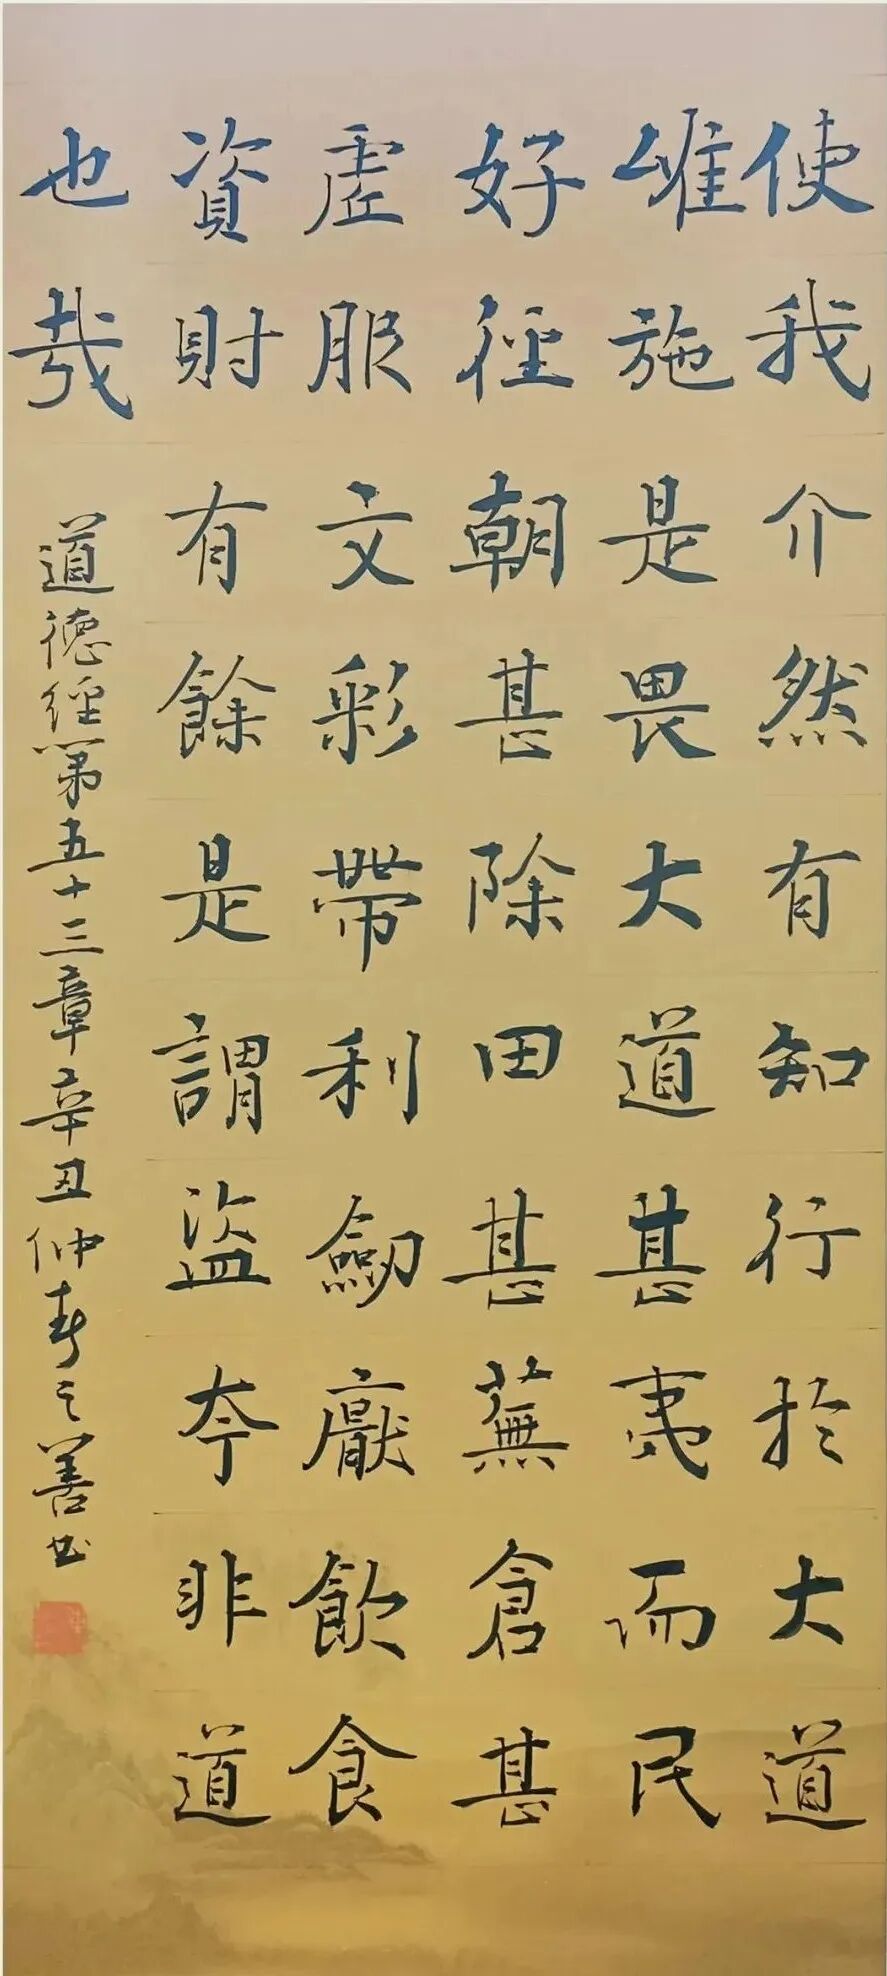 使我介然有知行於大道
唯施是畏大道甚夷而民
好徑朝甚除田甚蕪倉甚
虛服文彩帶利劒厭飲食
資財有餘是謂盜夸非道
也哉
道德經第五十三章辛丑仲春之善书